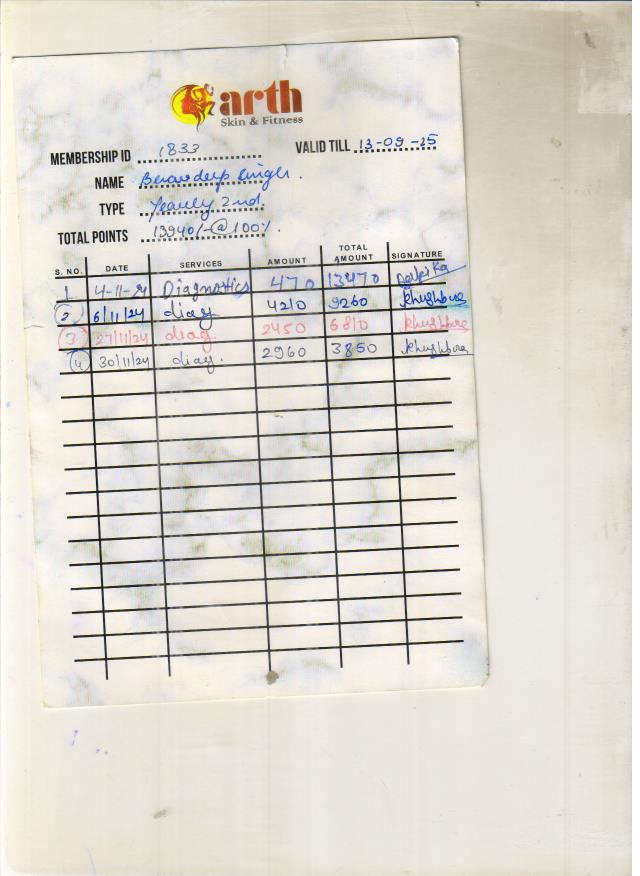 arth
Skin & Fitness
MEMBERSHIP ID 1833 VALID TILL 13-09-25
NAME Singh.
TYPE Yearly 2nd.
TOTAL POINTS 13940/-@100%.
S. NO. DATE SERVICES AMOUNT TOTAL AMOUNT SIGNATURE
1 4-11-24 Diagnostics 470 13470 Deepika
2 6/11/24 diag 4210 9260 Khushboo
3 27/11/24 diag. 2450 6810 Khushboo
4 30/11/24 diag. 2960 3850 Khushboo